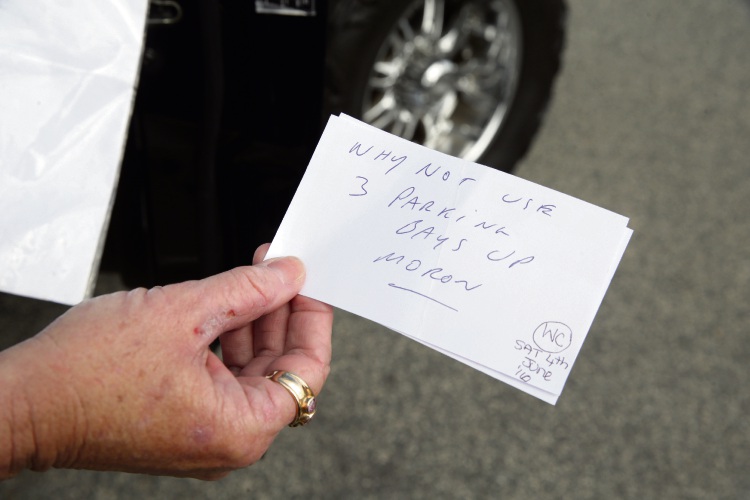 WHY NOT USE
3 PARKING
BAYS UP
MORON
WC
SAT 4th
JUNE
'16